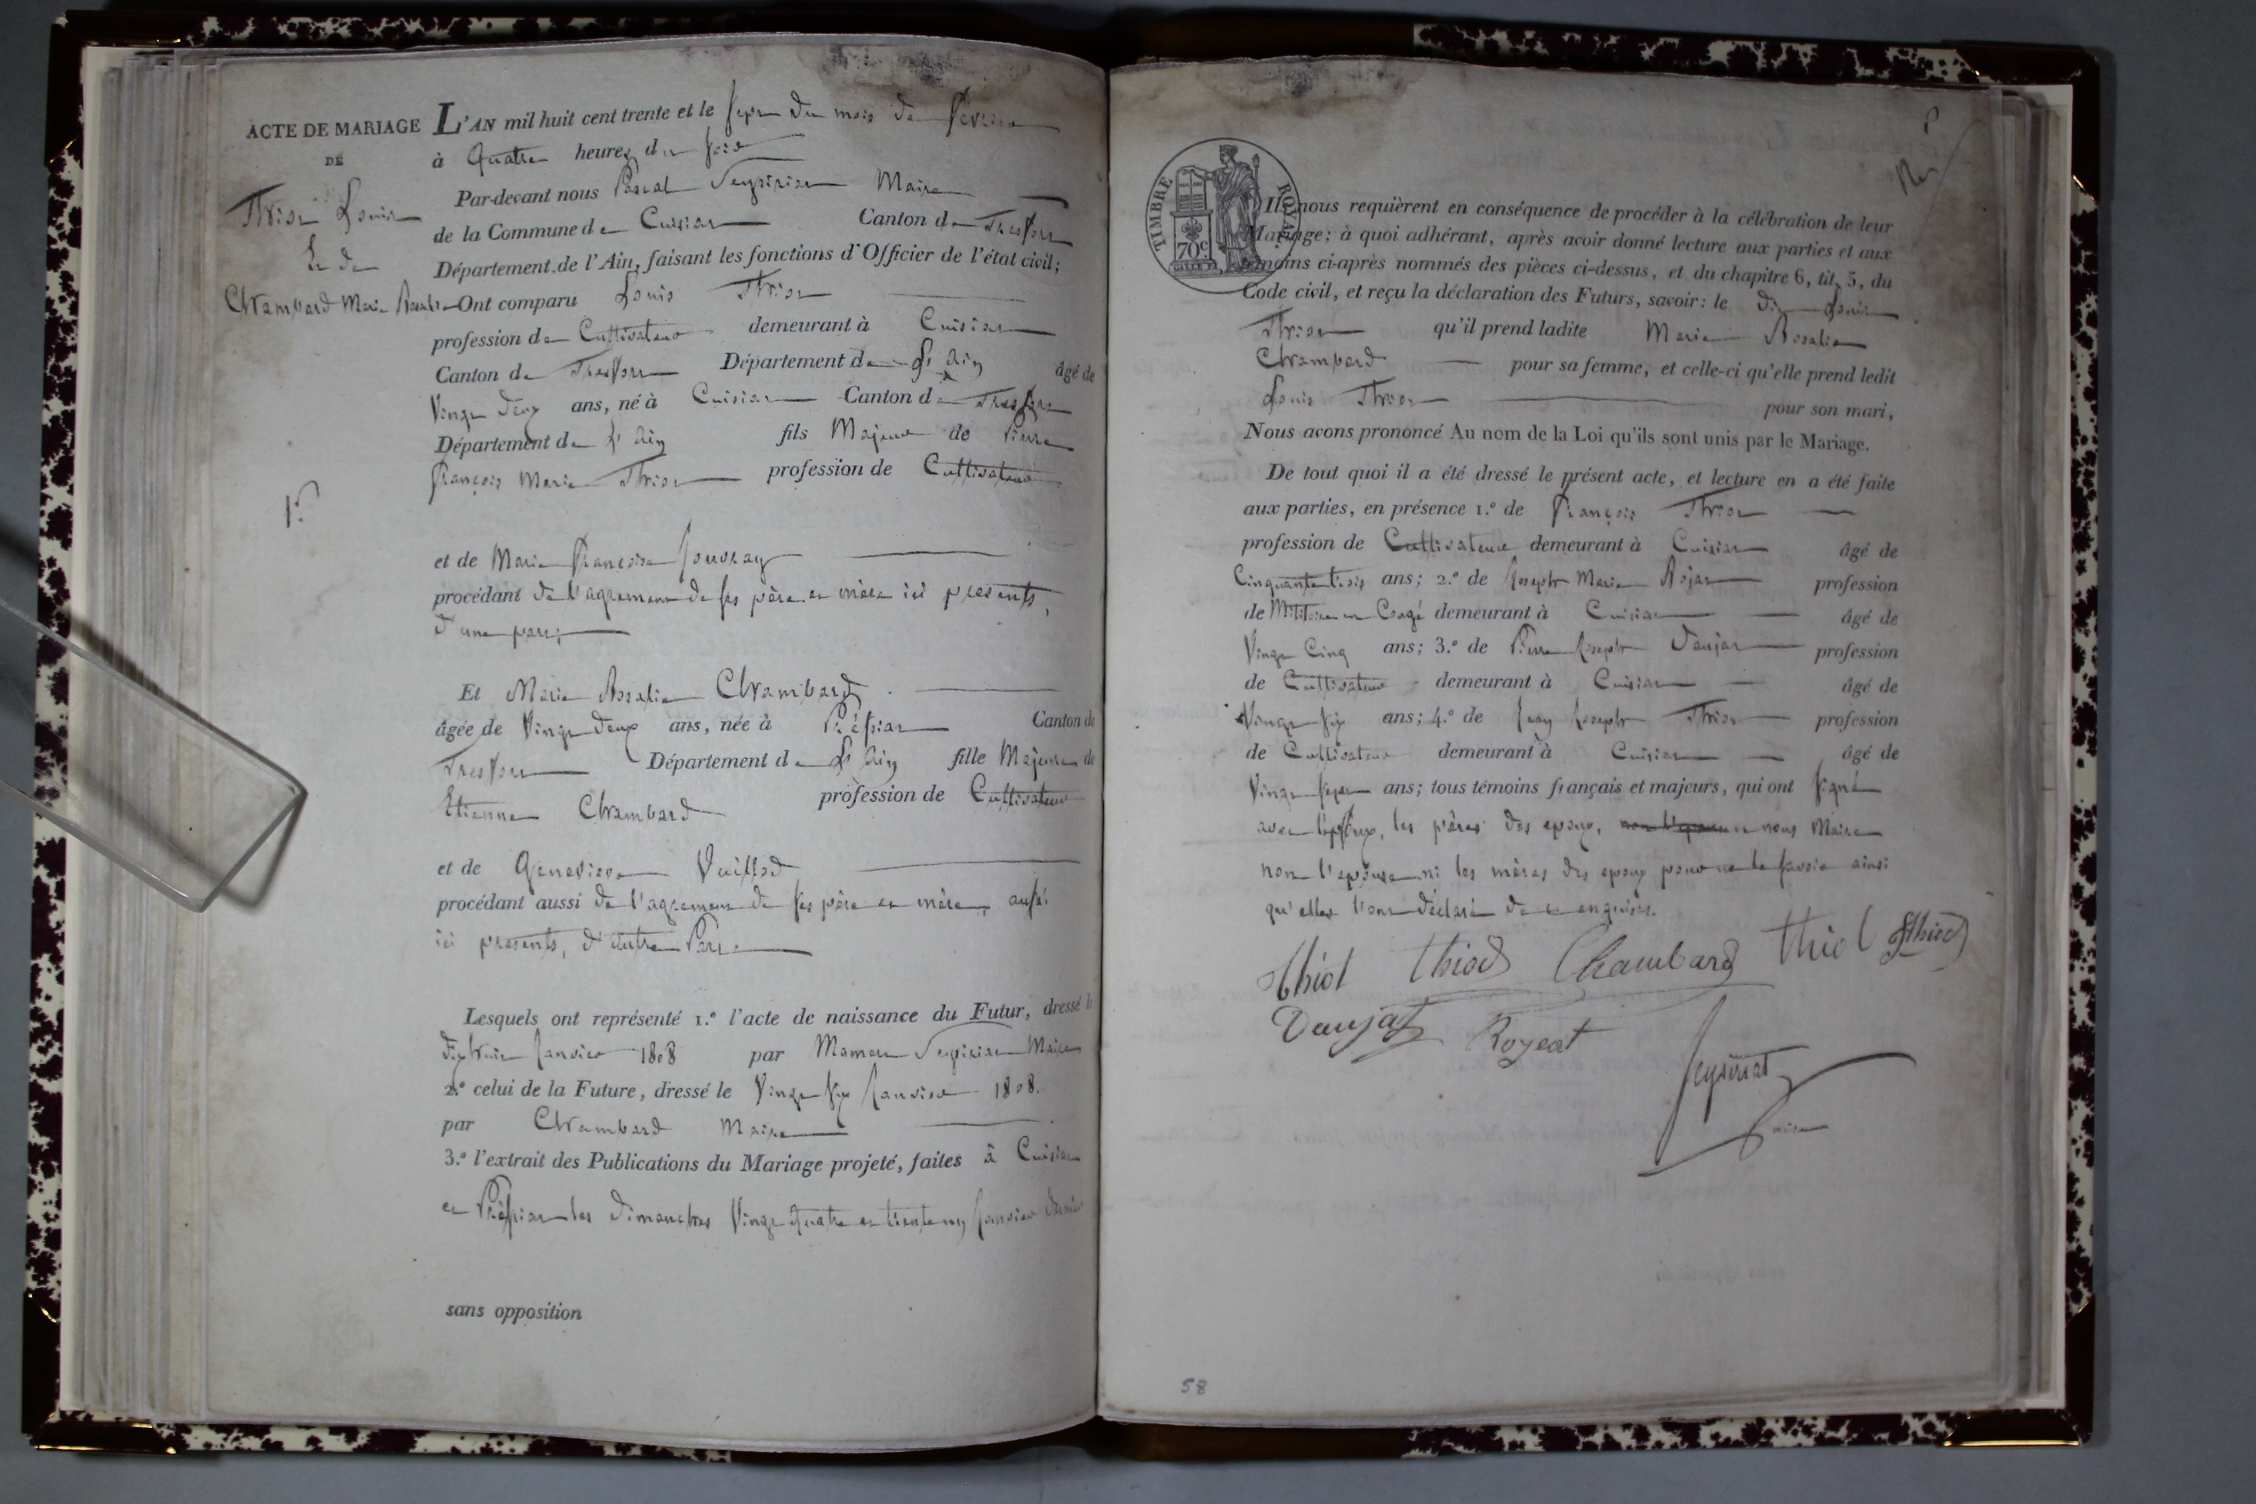 ACTE DE MARIAGE
DE
Thiot Louis
Et de
Chambard Marie Rosalie
L'AN mil huit cent trente et le sept du mois de Février
à Quatre heures du soir
Par-devant nous Pascal Seyssiat Maire
de la Commune de Cuisiat Canton de Treffort
Département de l'Ain, faisant les fonctions d'Officier de l'état civil;
Ont comparu Louis Thiot
profession de Cultivateur demeurant à Cuisiat
Canton de Treffort Département de L'Ain âgé de
Vingt deux ans, né à Cuisiat Canton de Treffort
Département de L'Ain fils Majeur de Pierre
François Marie Thiot profession de Cultivateur
et de Marie Françoise Jouvray
procédant de l'agrement de ses père et mère ici présents,
d'une part;
Et Marie Rosalie Chambard
âgée de Vingt deux ans, née à Préssiat Canton de
Treffort Département de L'Ain fille Majeure de
Etienne Chambard profession de Cultivateur
et de Geneviève Vuillod
procédant aussi de l'agrement de ses père et mère, aussi
ici présents, d'autre Part
Lesquels ont représenté 1.º l'acte de naissance du Futur, dressé le
dix huit Janvier 1808 par Maire
2.º celui de la Future, dressé le Vingt six Janvier 1808.
par Chambard Maire
3.º l'extrait des Publications du Mariage projeté, faites à Cuisiat
et Préssiat les dimanches Vingt quatre et trente un Janvier dernier
sans opposition
TIMBRE ROYAL
70c
Ils nous requièrent en conséquence de procéder à la célébration de leur
Mariage; à quoi adhérant, après avoir donné lecture aux parties et aux
témoins ci-après nommés des pièces ci-dessus, et du chapitre 6, tit. 5, du
Code civil, et reçu la déclaration des Futurs, savoir: le dit Louis
Thiot qu'il prend ladite Marie Rosalie
Chambard pour sa femme, et celle-ci qu'elle prend ledit
Louis Thiot pour son mari,
Nous avons prononcé Au nom de la Loi qu'ils sont unis par le Mariage.
De tout quoi il a été dressé le présent acte, et lecture en a été faite
aux parties, en présence 1.º de François Thiot
profession de Cultivateur demeurant à Cuisiat âgé de
Cinquante trois ans; 2.º de Joseph Marie Rojat profession
de Militaire en Congé demeurant à Cuisiat âgé de
Vingt Cinq ans; 3.º de Pierre Joseph Daujat profession
de Cultivateur demeurant à Cuisiat âgé de
Vingt six ans; 4.º de Jean Joseph Thiot profession
de Cultivateur demeurant à Cuisiat âgé de
Vingt sept ans; tous témoins français et majeurs, qui ont signé
avec l'époux, les pères des époux, et nous Maire
non l'épouse ni les mères des époux pour ne le savoir ainsi
qu'elles l'ont déclaré de ce enquises.
thiot thiod Chambard thiol Jthiod
Daujat Royeat
Seyssiat
maire
58